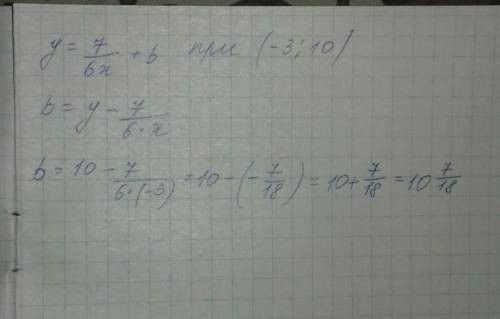 y = 7/6x + b при (-3; 10)
b = y - 7/6·x
b = 10 - 7/6·(-3) = 10 - (-7/18) = 10 + 7/18 = 10 7/18